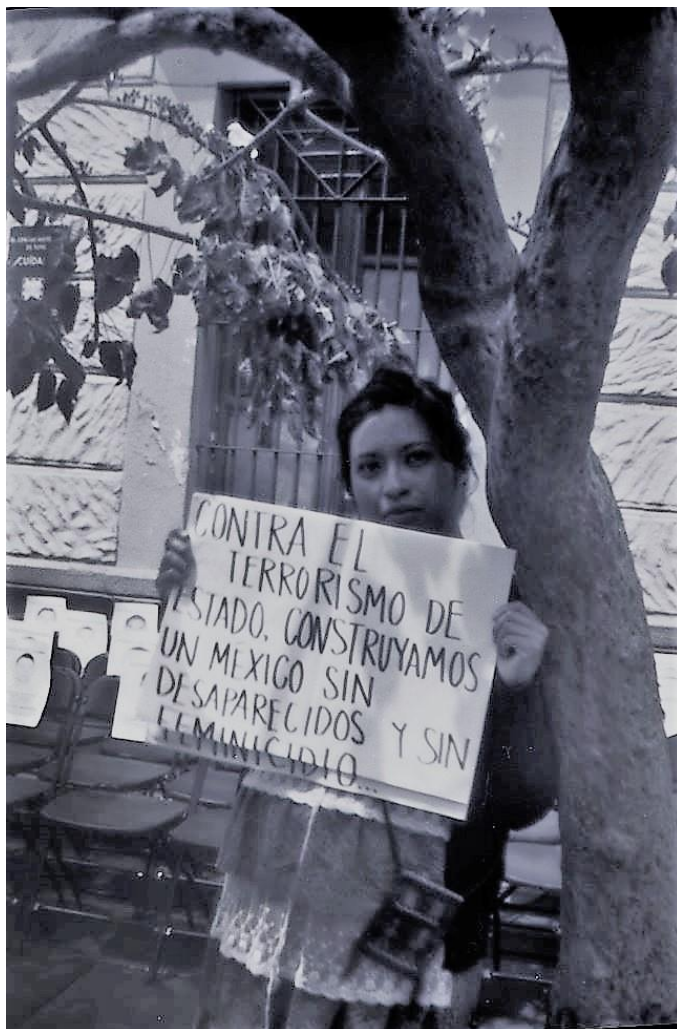 CUIDA
CONTRA EL
TERRORISMO DE
ESTADO, CONSTRUYAMOS
UN MEXICO SIN
DESAPARECIDOS Y SIN
FEMINICIDIO...